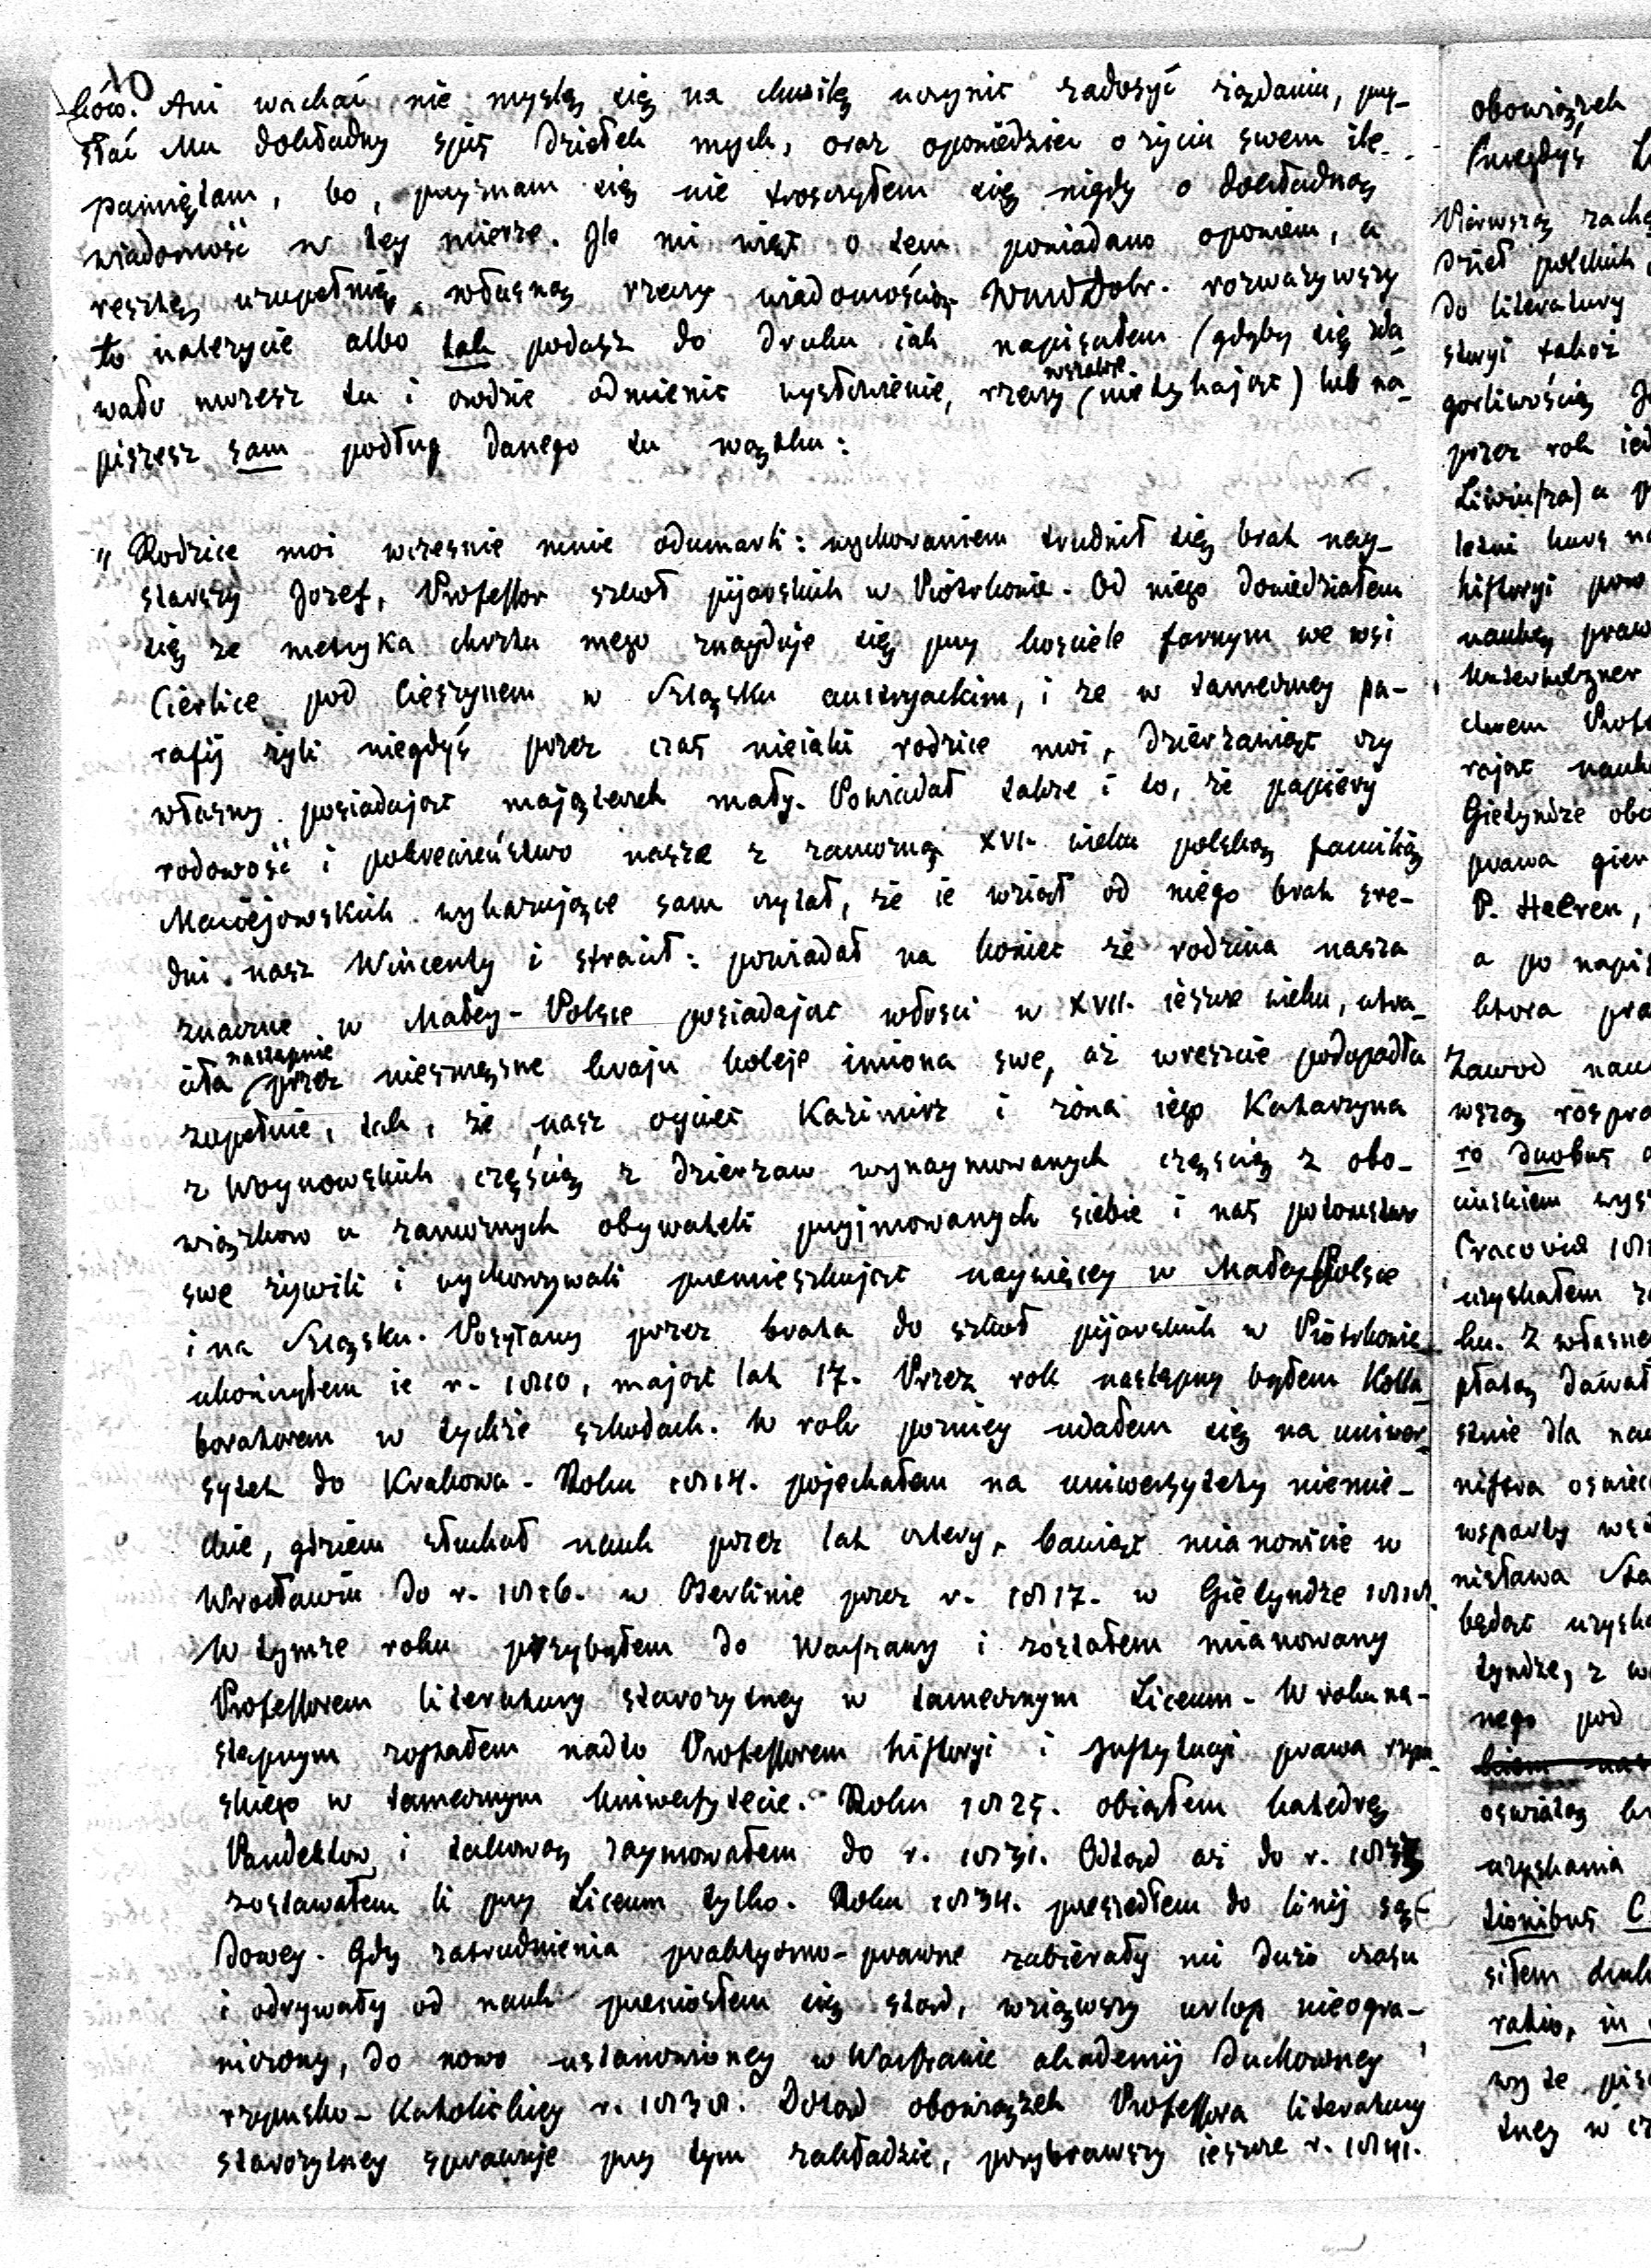 10
ków. Ani wachać nie myślę się na chwilę uczynić zadosyć żądaniu, przy-
słać Mu dokładny spis Dziełek mych, oraz opowiedzieć o życiu swem ile
pamiętam, bo, przyznam się nie troszczyłem się nigdy o dokładną
wiadomość w tey mierze. Ile mi więc o tem powiadano opowiem, a
resztę uzupełnię własną rzeczy wiadomością. WmWDobr. rozważywszy
to należycie albo tak podasz do druku iak napisałem (gdyby się zda-
wało możesz tu i owdzie odmienić wysłowienie, rzeczy wszakże nie tykając) lub na-
piszesz sam podług danego tu wątku:
„Rodzice moi wcześnie mnie odumarli: wychowaniem trudnił się brat nay-
starszy Jozef, Professor szkoł pijarskich w Piotrkowie. Od niego dowiedziałem
się że metryka chrztu mego znayduje się przy kościele farnym we wsi
Cierlice pod Cieszynem w Szląsku austryackim, i że w tameczney pa-
rafij żyli niegdyś przez czas nieiaki rodzice moi, dzierżawiąc czy
własny posiadając majątek mały. Powiadał także i to, że papiery
rodowość i pokrewieństwo nasze z zamożną XVI. wieku polską familią
Maciejowskich wykazujące sam czytał, że ie wziął od niego brat śre-
dni nasz Wincenty i stracił: powiadał na koniec że rodzina nasza
znaczne w Małey-Polsce posiadając włości w XVII. ieszcze wieku, utra-
ciła następnie przez niesczęsne kraju koleje imiona swe, aż wreszcie podupadła
zupełnie, tak, że nasz ojciec Kazimirz i żona iego Katarzyna
z Woynowskich częścią z dzierżaw wynaymowanych częścią z obo-
wiązkow u zamożnych obywateli przyjmowanych siebie i nas potomstwo
swe żywili i wychowywali przemieszkując naywięcey w Małey Polsce
i na Szląsku. Posyłany przez brata do szkoł pijarskich w Piotrkowie
ukończyłem ie r. 1810, mając lat 17. Przez rok następny byłem Kolla-
boratorem w tychże szkołach. W rok pozniey udałem się na uniwer-
sytet do Krakowa. Roku 1814. pojechałem na uniwersytety niemie-
ckie, gdziem słuchał nauk przez lat cztery, bawiąc mianowicie w
Wrocławiu do r. 1816. w Berlinie przez r. 1817. w Gietyndze 1818.
W tymże roku przybyłem do Warszawy i zostałem mianowany
Professorem literatury starożytney w tamecznym Liceum. W roku na-
stępnym zostałem nadto Professorem historyi i Instytucji prawa rzym-
skiego w tamecznym Uniwersytecie. Roku 1825. obiąłem katedrę
Pandektow i takową zaymowałem do r. 1831. Odtąd aż do r. 1833
zostawałem li przy Liceum tylko. Roku 1834. przeszedłem do linij są-
dowey. Gdy zatrudnienia praktyczno-prawne zabierały mi dużo czasu
i odrywały od nauk przeniosłem się ztąd, wziąwszy urlop nieogra-
niczony, do nowo ustanowioney w Warszawie akademij duchowney
rzymsko-Katolickiey r. 1838. Dotąd obowiązek Professora literatury
starożytney sprawuje przy tym zakładzie, przybrawszy ieszcze r. 1841.
obowiązek
Pierwszą
dzieł polskich
do literatury
storyi takoż
gorliwością
przez rok
historyi
naukę
P. Heeren,
a po
ktora
Zawod
ro duobus
Cracovia
uzyskałem
ku. Z
wsparty
nisława
będąc
nego pod
oświatę
uzyskania